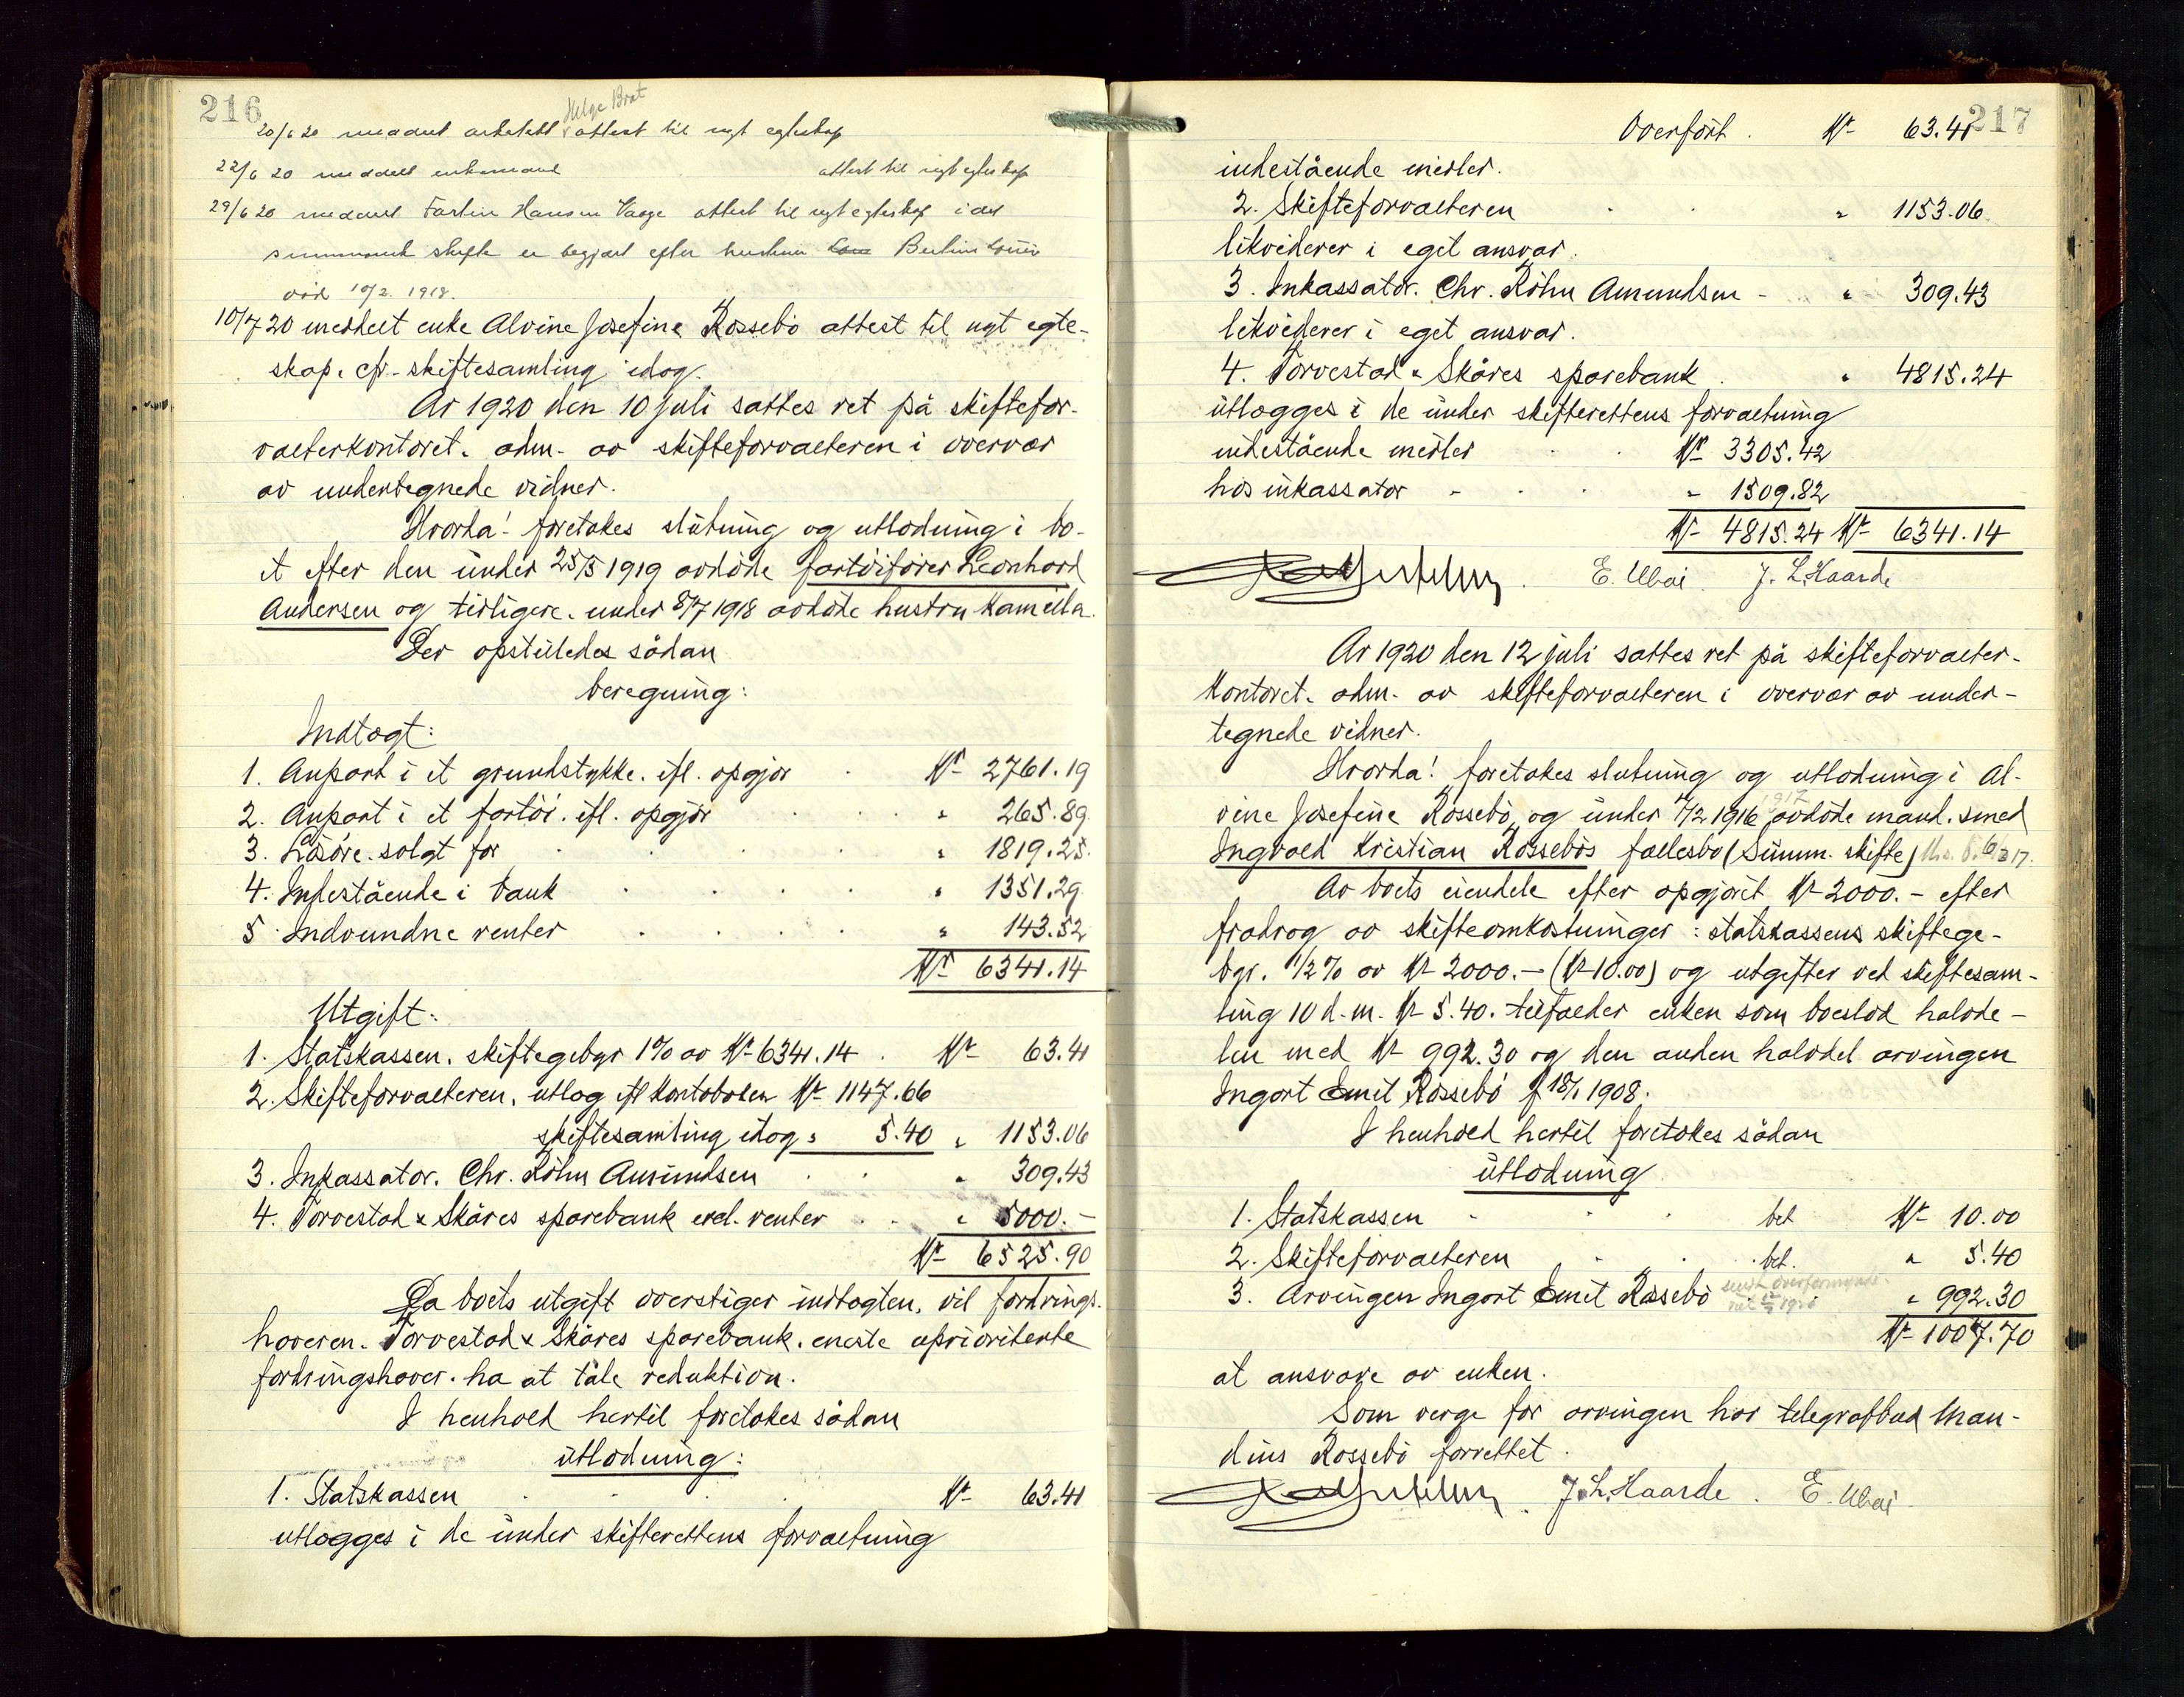 216
Helge Brat
20/6 20 meddelt arbeidet attest til nyt egteskap
22/6 20 meddelt enkemand attest til nyt egteskap
29/6 20 meddelt Hansen Vaage attest til nyt egteskap idet
summarisk skifte er begjært efter hustruen Berlin
död 10/2 1918.
10/7 20 meddelt enke Alvine Josefine Rossebö attest til nyt egte-
skap, cfr. skiftesamling idag.
År 1920 den 10 juli sattes ret på skiftefor-
valterkontoret, adm. av skifteforvalteren i overvær
av undertegnede vidner.
Hvorda! foretokes slutning og utlodning i bo-
et efter den under 25/5 1919 avdöde fartöiförer Leonhard
Andersen og tidligere, under 8/7 1918 avdöde hustru Kamilla.
Der opstilledes sådan
beregning:
Indtægt:
1. Anpart i et grundstykke, ifl. opgjör Kr. 2761.19
2. Anpart i et fartöi, ifl. opgjör " 265.89
3. Lösöre, solgt for " 1819.25
4. Indestående i bank " 1351.29
5. Indvundne renter " 143.52
Kr. 6341.14
Utgift:
1. Statskassen, skiftegebyr 1% av Kr. 6341.14 Kr. 63.41
2. Skifteforvalteren, utlæg ifl kontoboken Kr. 1147.66
skiftesamling idag " 5.40 " 1153.06
3. Inkassator, Chr. Röhn Amundsen " 309.43
4. Torvestad & Skåres sparebank excl. renter " 5000.-
Kr. 6525.90
Da boets utgift overstiger indtægten, vil fordrings-
haveren, Torvestad & Skåres sparebank, eneste uprioriterte
fordringshaver, ha at tåle reduktion.
I henhold hertil foretokes sådan
utlodning:
1. Statskassen Kr. 63.41
utlægges i de under skifterettens forvaltning
217
Overfört. Kr. 63.41
indestående midler.
2. Skifteforvalteren " 1153.06
likviderer i eget ansvar.
3. Inkassator, Chr. Röhn Amundsen - " 309.43
likviderer i eget ansvar.
4. Torvestad & Skåres sparebank " 4815.24
utlægges i de under skifterettens forvaltning
indestående midler Kr. 3305.42
hos inkassator " 1509.82
Kr. 4815.24 Kr. 6341.14
E. Ubøi J. L. Haarde
År 1920 den 12 juli sattes ret på skifteforvalter-
kontoret, adm. av skifteforvalteren i overvær av under-
tegnede vidner.
Hvorda! foretokes slutning og utlodning i Al-
vine Josefine Rossebö og under 7/2 1916 1917 avdöde mand, smed
Ingvald Kristian Rossebös fællesbo (Summ. skifte)
Av boets eiendele efter opgjöret Kr. 2000.- efter
fradrag av skifteomkostninger: statskassens skiftege-
byr. 1/2% av Kr. 2000.- (Kr. 10.00) og utgifter ved skiftesam-
ling 10 d.m. Kr. 5.40, tilfalder enken som boeslod halvde-
len med Kr. 992.30 og den anden halvdel arvingen
Ingort Emil Rossebö f 18/1 1908.
I henhold hertil foretokes sådan
utlodning
1. Statskassen bet Kr. 10.00
2. Skifteforvalteren bet. " 5.40
3. Arvingen Ingort Emil Rossebö sendt overformynderi " 992.30
Kr. 1007.70
at ansvare av enken.
Som verge for arvingen har telegrafbud Man-
dius Rossebö forrettet.
J. L. Haarde. E. Ubøi